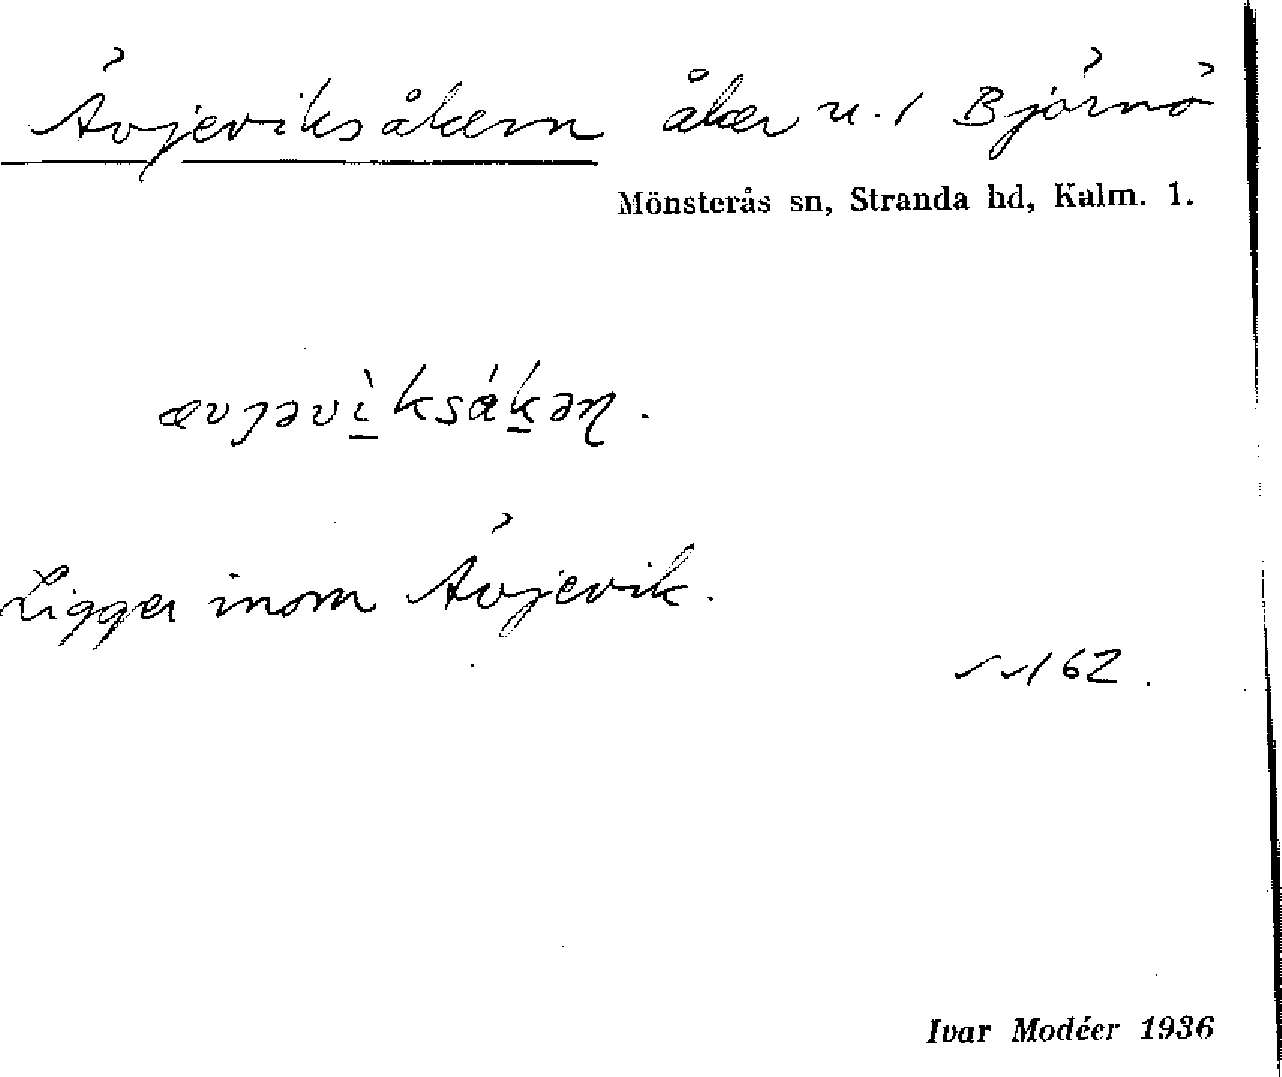 Ävjeviksåkern åker u. 1 Björnö
Mönsterås sn, Stranda hd, Kalm. l.
ævjəvìksákəɳ.
Ligger inom Ävjevik.
162.
Ivar Modéer 1936